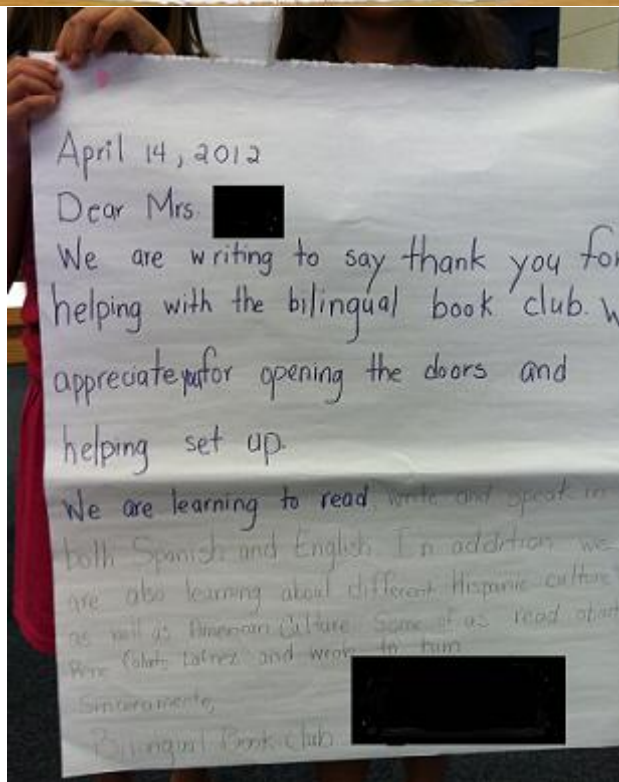 April 14, 2012
Dear Mrs.
We are writing to say thank you for
helping with the bilingual book club. W
appreciate you for opening the doors and
helping set up.
We are learning to read write and speak in
both Spanish and English. In addition we
are also learning about different Hispanic culture
as well as American Culture. Some of us read about
Rene Colato Lainez and wrote to him
Sinceramente,
Bilingual Book club